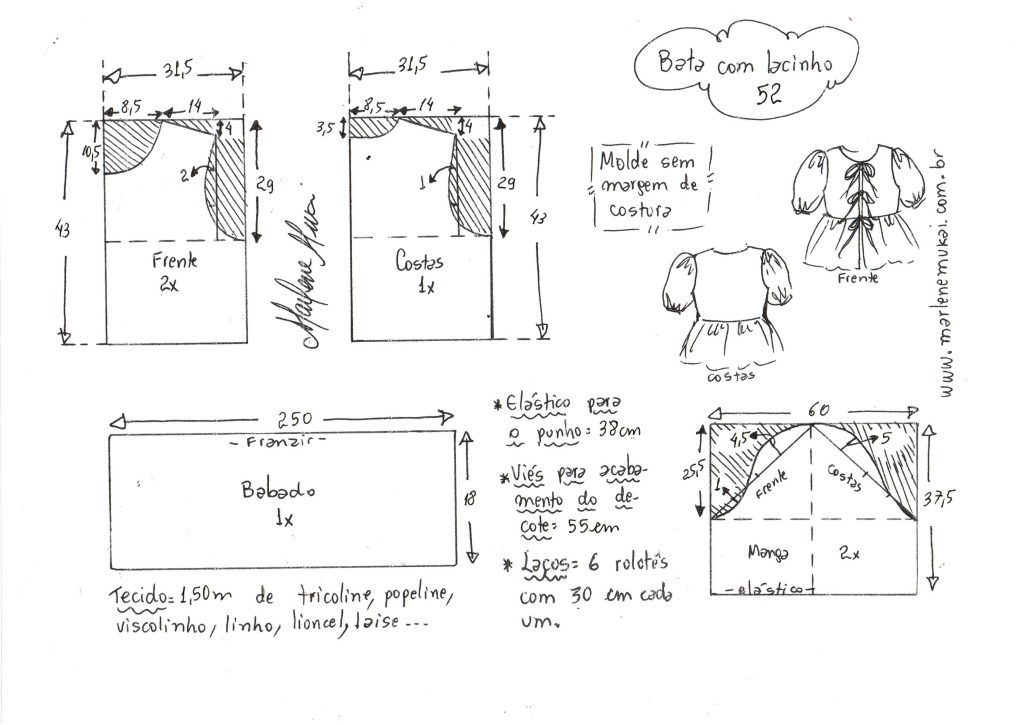 Bata com lacinho
52
31,5
8,5
14
4
10,5
2
29
43
Frente
2x
Marlene Mukai
31,5
8,5
14
4
3,5
1
29
43
Costas
1x
Molde sem
margem de
costura
Frente
costas
www.marlenemukai.com.br
250
- Franzir -
Babado
1x
18
Tecido= 1,50m de tricoline, popeline,
viscolinho, linho, lioncel, laise ...
* Elástico para
o punho= 38cm
* Viés para acaba-
mento do de-
cote= 55cm
* Laços= 6 rolotês
com 30 cm cada
um.
60
4,5
5
25,5
1
Frente
Costas
37,5
Manga
2x
- elástico -